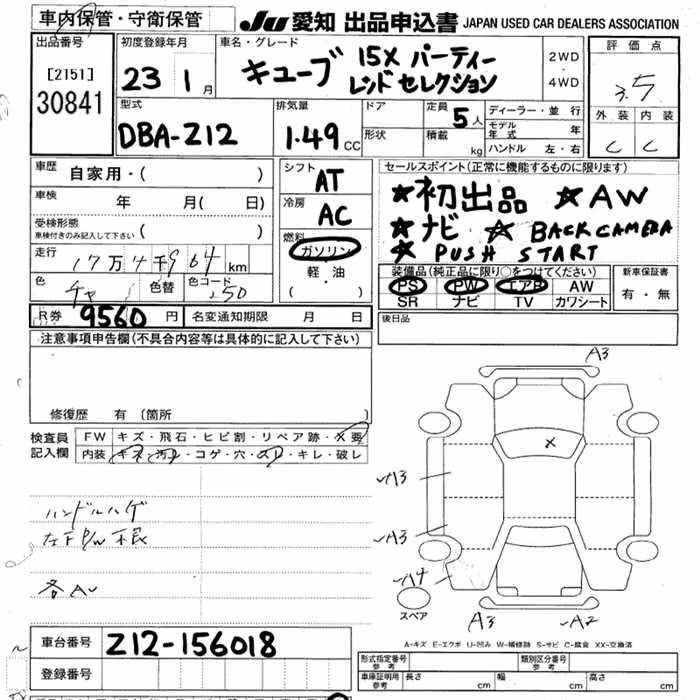 車内保管・守衛保管 JU 愛知 出品申込書 JAPAN USED CAR DEALERS ASSOCIATION
出品番号 初度登録年月 車名・グレード 評価点
[2151] 23 1月 キューブ 15X パーティー 2WD 3.5
30841 レッドセレクション 4WD
型式 排気量 ドア 定員 5人 ディーラー・並行 外装 内装
DBA-Z12 1.49CC 形状 積載 kg モデル年式 年 C C
ハンドル 左・右
車歴 自家用・( ) シフト AT セールスポイント(正常に機能するものに限ります)
車検 年 月( 日) 冷房 AC ★初出品 ★AW
受検形態 ★ナビ ★BACK CAMERA
車検付きのみ記入して下さい ( ) 燃料 ★PUSH START
走行 17万4千964km ガソリン 装備品(純正品に限り○をつけてください) 新車保証書
色 色替 色コード 250 軽・油 PS PW エアB AW 有・無
( ・ ) SR ナビ TV カワシート
R券 9560円 名変通知期限 月 日 後日品
注意事項申告欄(不具合内容等は具体的に記入して下さい)
A3
修復歴 有(箇所
検査員 FW キズ・飛石・ヒビ割・リペア跡・X要
記入欄 内装 キズ・汚れ・コゲ・穴・スレ・キレ・破レ
X
A3
ハンドルハゲ
左F P/W不良 A3
各AU A4
スペア
A3 A2
A-キズ E-エクボ U-凹み W-補修跡 S-サビ C-腐食 XX-交換済
車台番号 Z12-156018
形式指定番号 参考 類別区分番号 参考
登録番号 車庫証明用 参考 長さ cm 幅 cm 高さ cm